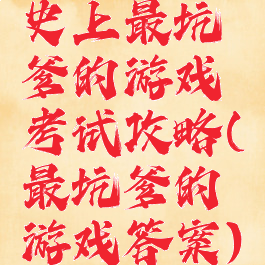 史上最坑
爹的游戏
考试攻略(
最坑爹的
游戏答案)